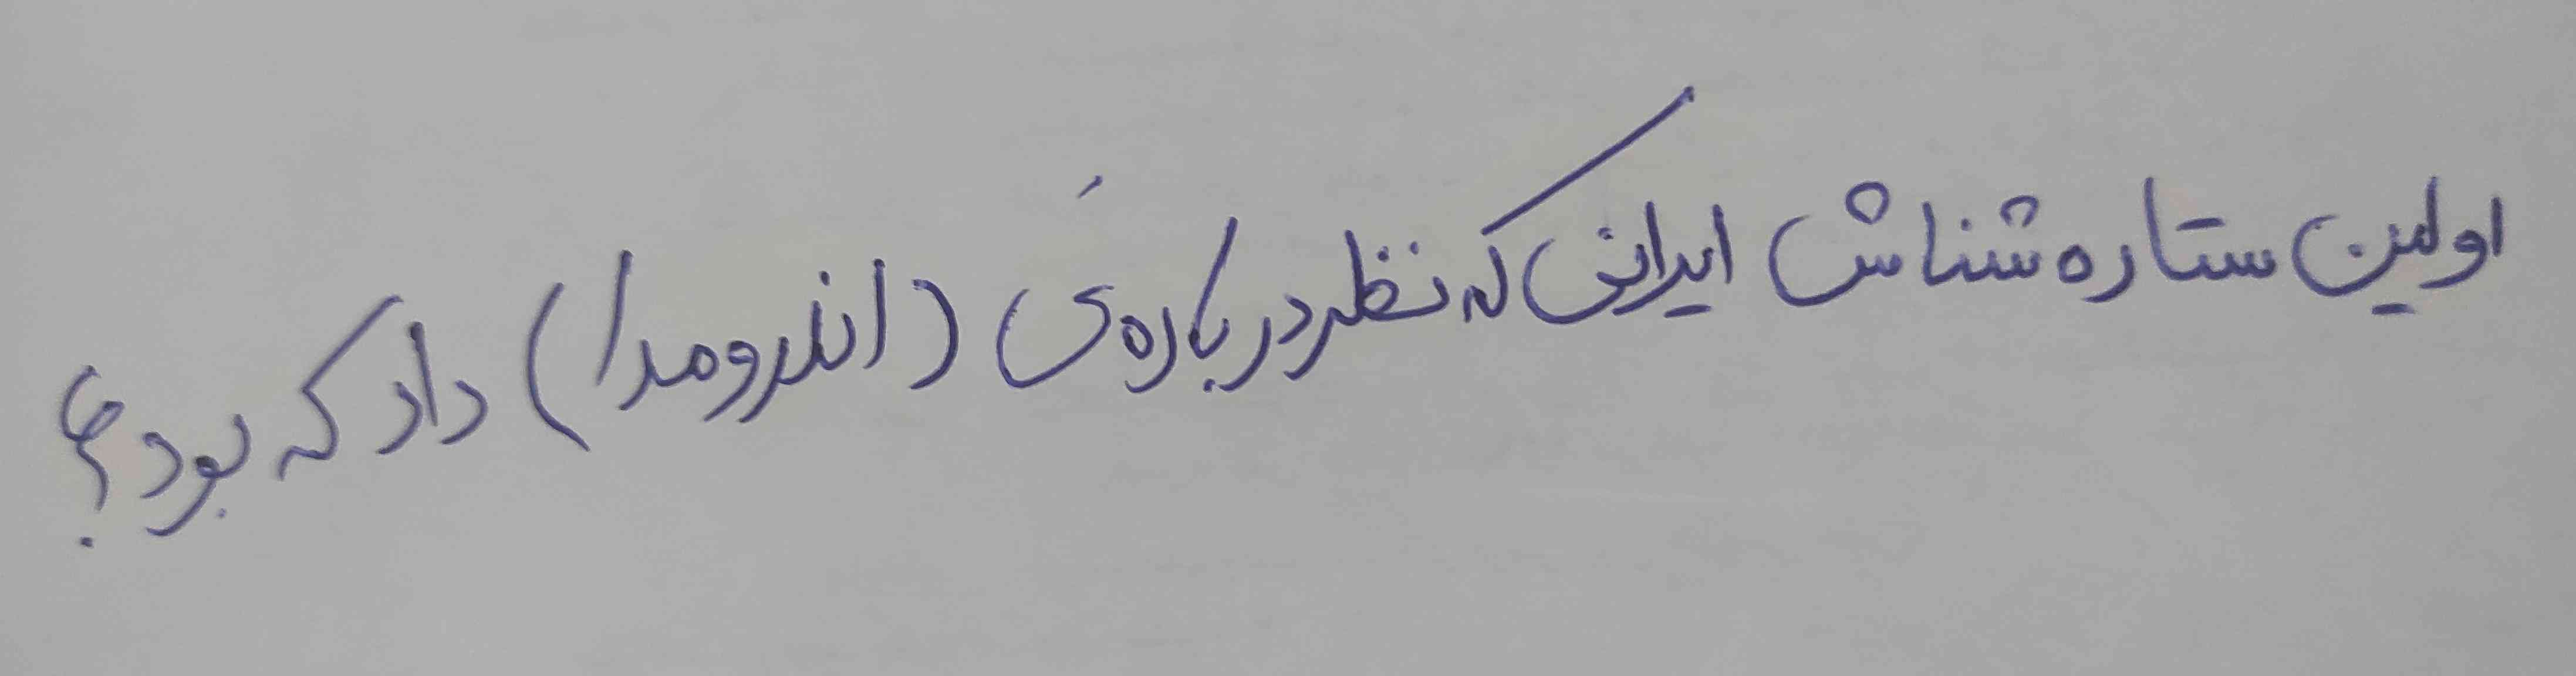 اولین ستاره شناس ایرانی که نظر درباره‌ی (اندرومدا) داد که بود؟